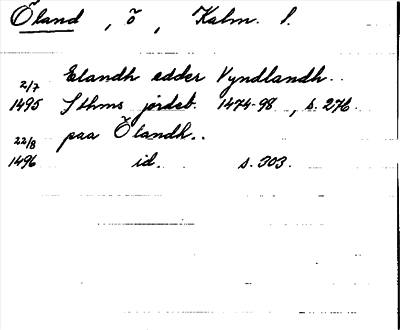 Öland, ö, Kalm. l.
2/7 Elandh edder Vyndlandh..
1495 Sthms jordeb. 1474-98, s. 276.
22/8 paa Ölandh..
1496 id. s. 303.